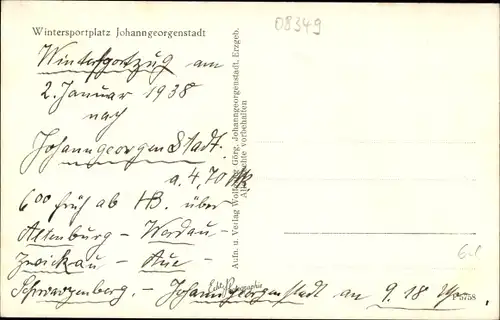 Wintersportplatz Johanngeorgenstadt
08349
Wintersportzug am
2. Januar 1938
nach
Johanngeorgenstadt.
a. 4,70 Mk
6⁰⁰ früh ab HB. über
Altenburg – Werdau –
Zwickau – Aue –
Schwarzenberg. – Johanngeorgenstadt an 9.18
Aufn. u. Verlag Görg, Johanngeorgenstadt, Erzgeb.
Alle Rechte vorbehalten